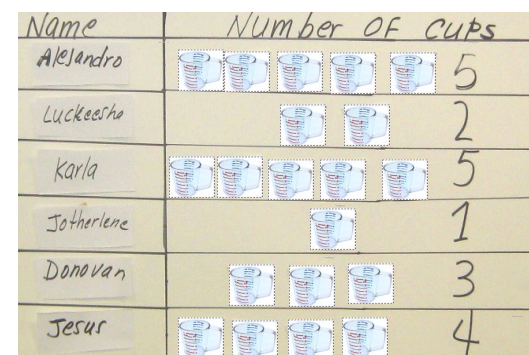 Name Number OF cups
Alejandro 5
Luckeesha 2
Karla 5
Jotherlene 1
Donovan 3
Jesus 4